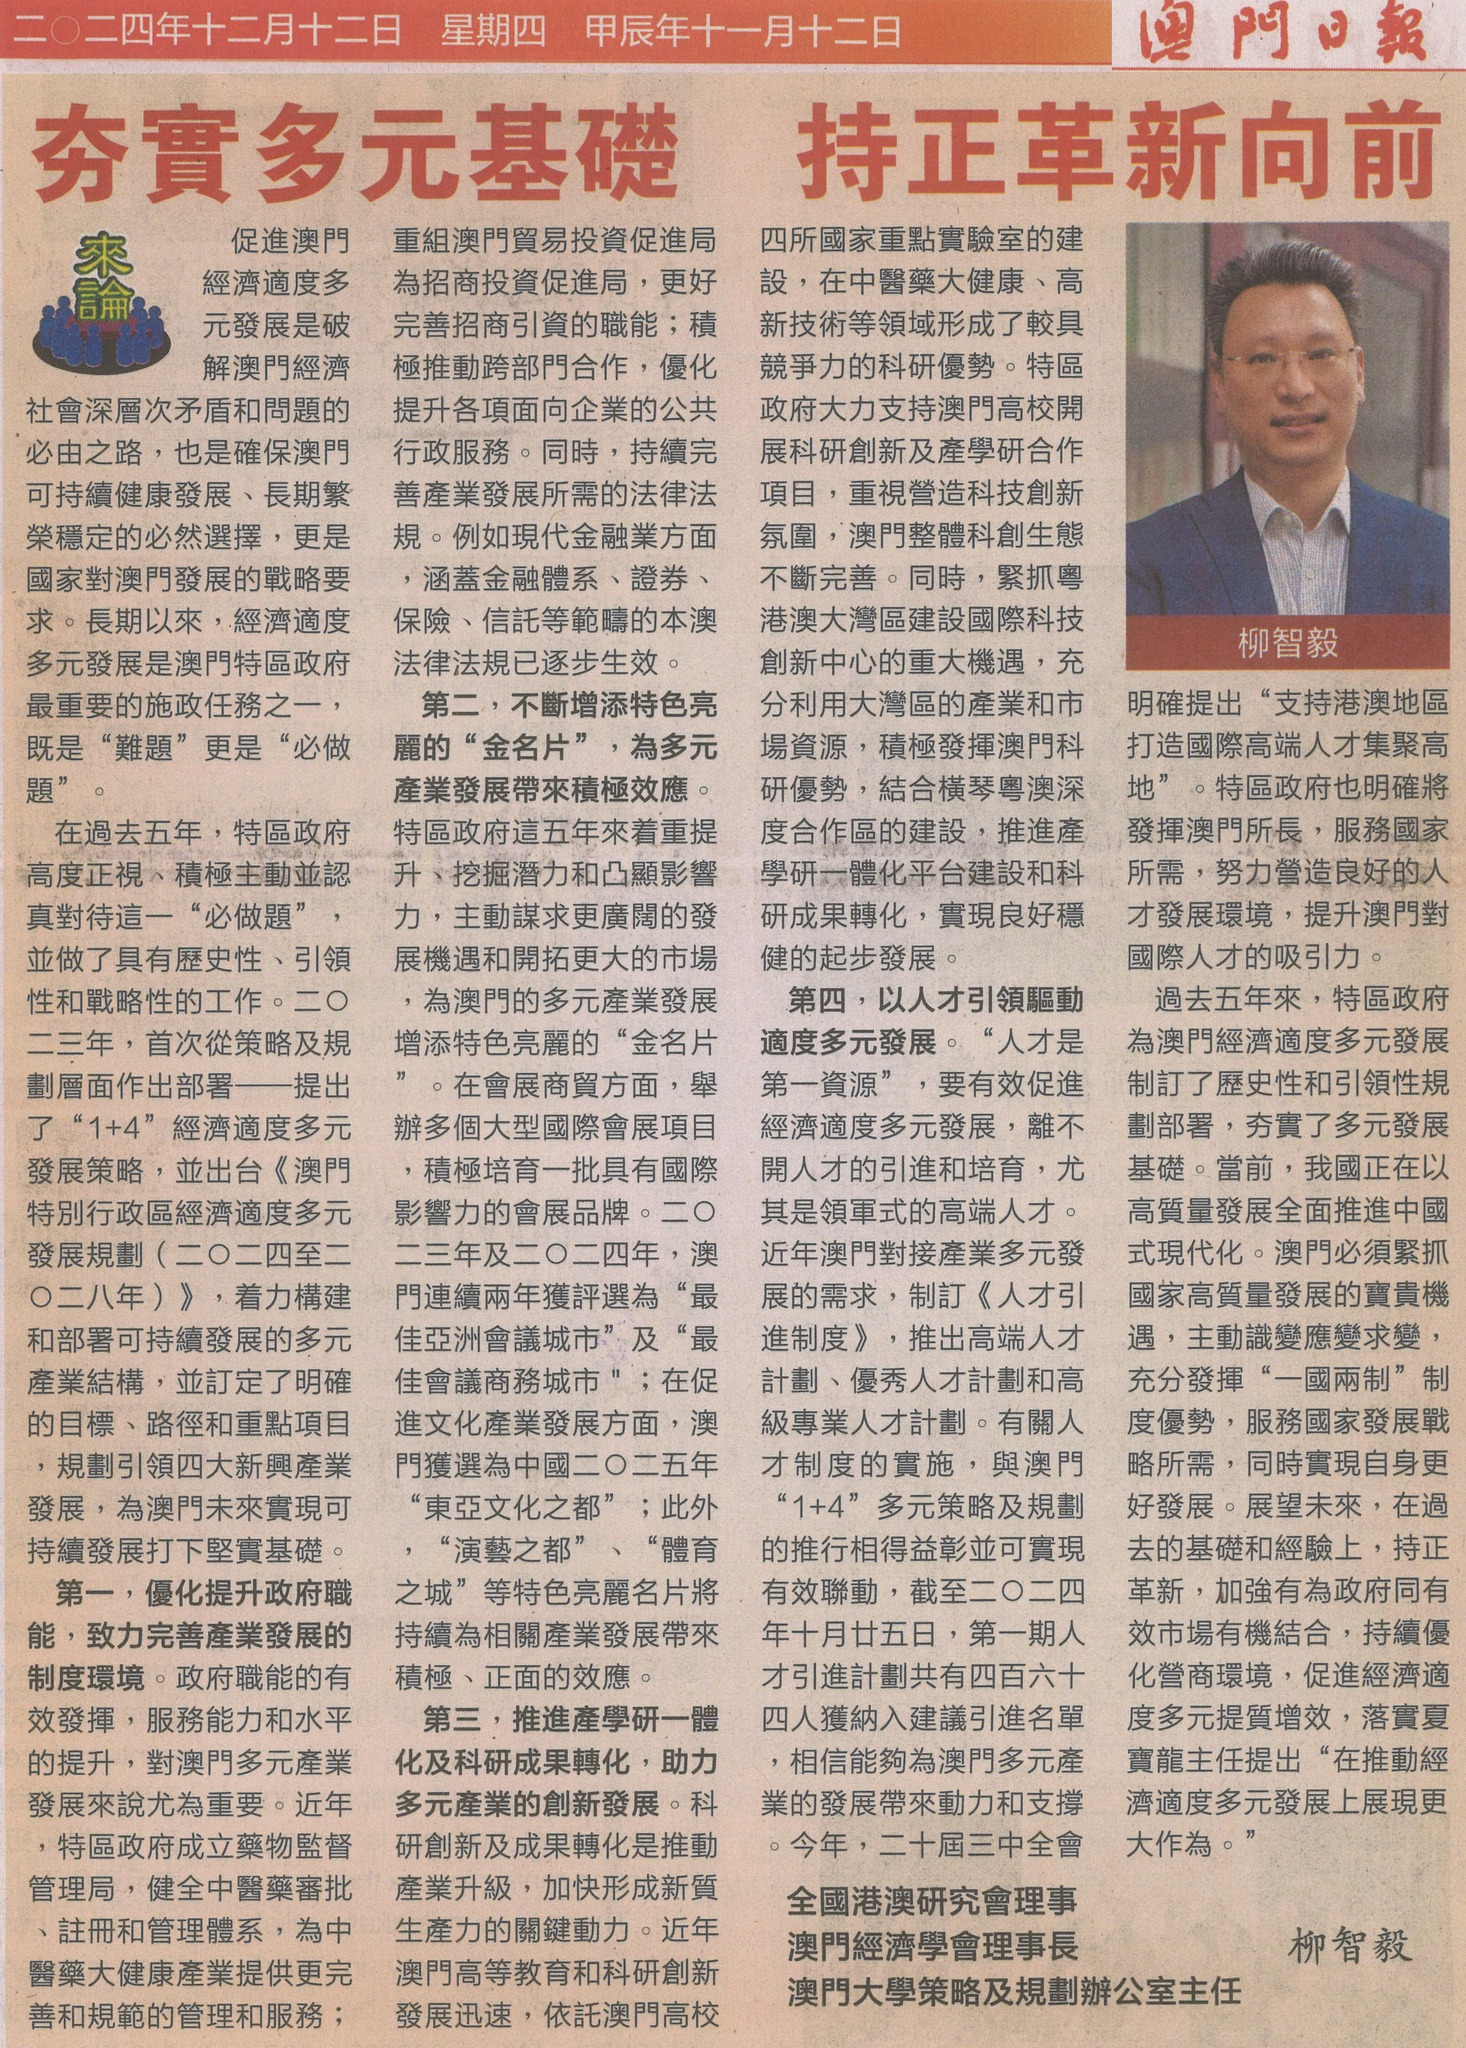 二○二四年十二月十二日　星期四　甲辰年十一月十二日
澳門日報
夯實多元基礎　持正革新向前
來論
促進澳門
經濟適度多
元發展是破
解澳門經濟
社會深層次矛盾和問題的
必由之路，也是確保澳門
可持續健康發展、長期繁
榮穩定的必然選擇，更是
國家對澳門發展的戰略要
求。長期以來，經濟適度
多元發展是澳門特區政府
最重要的施政任務之一，
既是“難題”更是“必做
題”。
在過去五年，特區政府
高度正視、積極主動並認
真對待這一“必做題”，
並做了具有歷史性、引領
性和戰略性的工作。二○
二三年，首次從策略及規
劃層面作出部署——提出
了“1+4”經濟適度多元
發展策略，並出台《澳門
特別行政區經濟適度多元
發展規劃（二○二四至二
○二八年）》，着力構建
和部署可持續發展的多元
產業結構，並訂定了明確
的目標、路徑和重點項目
，規劃引領四大新興產業
發展，為澳門未來實現可
持續發展打下堅實基礎。
第一，優化提升政府職
能，致力完善產業發展的
制度環境。政府職能的有
效發揮，服務能力和水平
的提升，對澳門多元產業
發展來說尤為重要。近年
，特區政府成立藥物監督
管理局，健全中醫藥審批
、註冊和管理體系，為中
醫藥大健康產業提供更完
善和規範的管理和服務；
重組澳門貿易投資促進局
為招商投資促進局，更好
完善招商引資的職能；積
極推動跨部門合作，優化
提升各項面向企業的公共
行政服務。同時，持續完
善產業發展所需的法律法
規。例如現代金融業方面
，涵蓋金融體系、證券、
保險、信託等範疇的本澳
法律法規已逐步生效。
第二，不斷增添特色亮
麗的“金名片”，為多元
產業發展帶來積極效應。
特區政府這五年來着重提
升、挖掘潛力和凸顯影響
力，主動謀求更廣闊的發
展機遇和開拓更大的市場
，為澳門的多元產業發展
增添特色亮麗的“金名片
”。在會展商貿方面，舉
辦多個大型國際會展項目
，積極培育一批具有國際
影響力的會展品牌。二○
二三年及二○二四年，澳
門連續兩年獲評選為“最
佳亞洲會議城市”及“最
佳會議商務城市"；在促
進文化產業發展方面，澳
門獲選為中國二○二五年
“東亞文化之都”；此外
，“演藝之都”、“體育
之城”等特色亮麗名片將
持續為相關產業發展帶來
積極、正面的效應。
第三，推進產學研一體
化及科研成果轉化，助力
多元產業的創新發展。科
研創新及成果轉化是推動
產業升級，加快形成新質
生產力的關鍵動力。近年
澳門高等教育和科研創新
發展迅速，依託澳門高校
四所國家重點實驗室的建
設，在中醫藥大健康、高
新技術等領域形成了較具
競爭力的科研優勢。特區
政府大力支持澳門高校開
展科研創新及產學研合作
項目，重視營造科技創新
氛圍，澳門整體科創生態
不斷完善。同時，緊抓粵
港澳大灣區建設國際科技
創新中心的重大機遇，充
分利用大灣區的產業和市
場資源，積極發揮澳門科
研優勢，結合橫琴粵澳深
度合作區的建設，推進產
學研一體化平台建設和科
研成果轉化，實現良好穩
健的起步發展。
第四，以人才引領驅動
適度多元發展。“人才是
第一資源”，要有效促進
經濟適度多元發展，離不
開人才的引進和培育，尤
其是領軍式的高端人才。
近年澳門對接產業多元發
展的需求，制訂《人才引
進制度》，推出高端人才
計劃、優秀人才計劃和高
級專業人才計劃。有關人
才制度的實施，與澳門
“1+4”多元策略及規劃
的推行相得益彰並可實現
有效聯動，截至二○二四
年十月廿五日，第一期人
才引進計劃共有四百六十
四人獲納入建議引進名單
，相信能夠為澳門多元產
業的發展帶來動力和支撐
。今年，二十屆三中全會
柳智毅
明確提出“支持港澳地區
打造國際高端人才集聚高
地”。特區政府也明確將
發揮澳門所長，服務國家
所需，努力營造良好的人
才發展環境，提升澳門對
國際人才的吸引力。
過去五年來，特區政府
為澳門經濟適度多元發展
制訂了歷史性和引領性規
劃部署，夯實了多元發展
基礎。當前，我國正在以
高質量發展全面推進中國
式現代化。澳門必須緊抓
國家高質量發展的寶貴機
遇，主動識變應變求變，
充分發揮“一國兩制”制
度優勢，服務國家發展戰
略所需，同時實現自身更
好發展。展望未來，在過
去的基礎和經驗上，持正
革新，加強有為政府同有
效市場有機結合，持續優
化營商環境，促進經濟適
度多元提質增效，落實夏
寶龍主任提出“在推動經
濟適度多元發展上展現更
大作為。”
全國港澳研究會理事
澳門經濟學會理事長
澳門大學策略及規劃辦公室主任
柳智毅